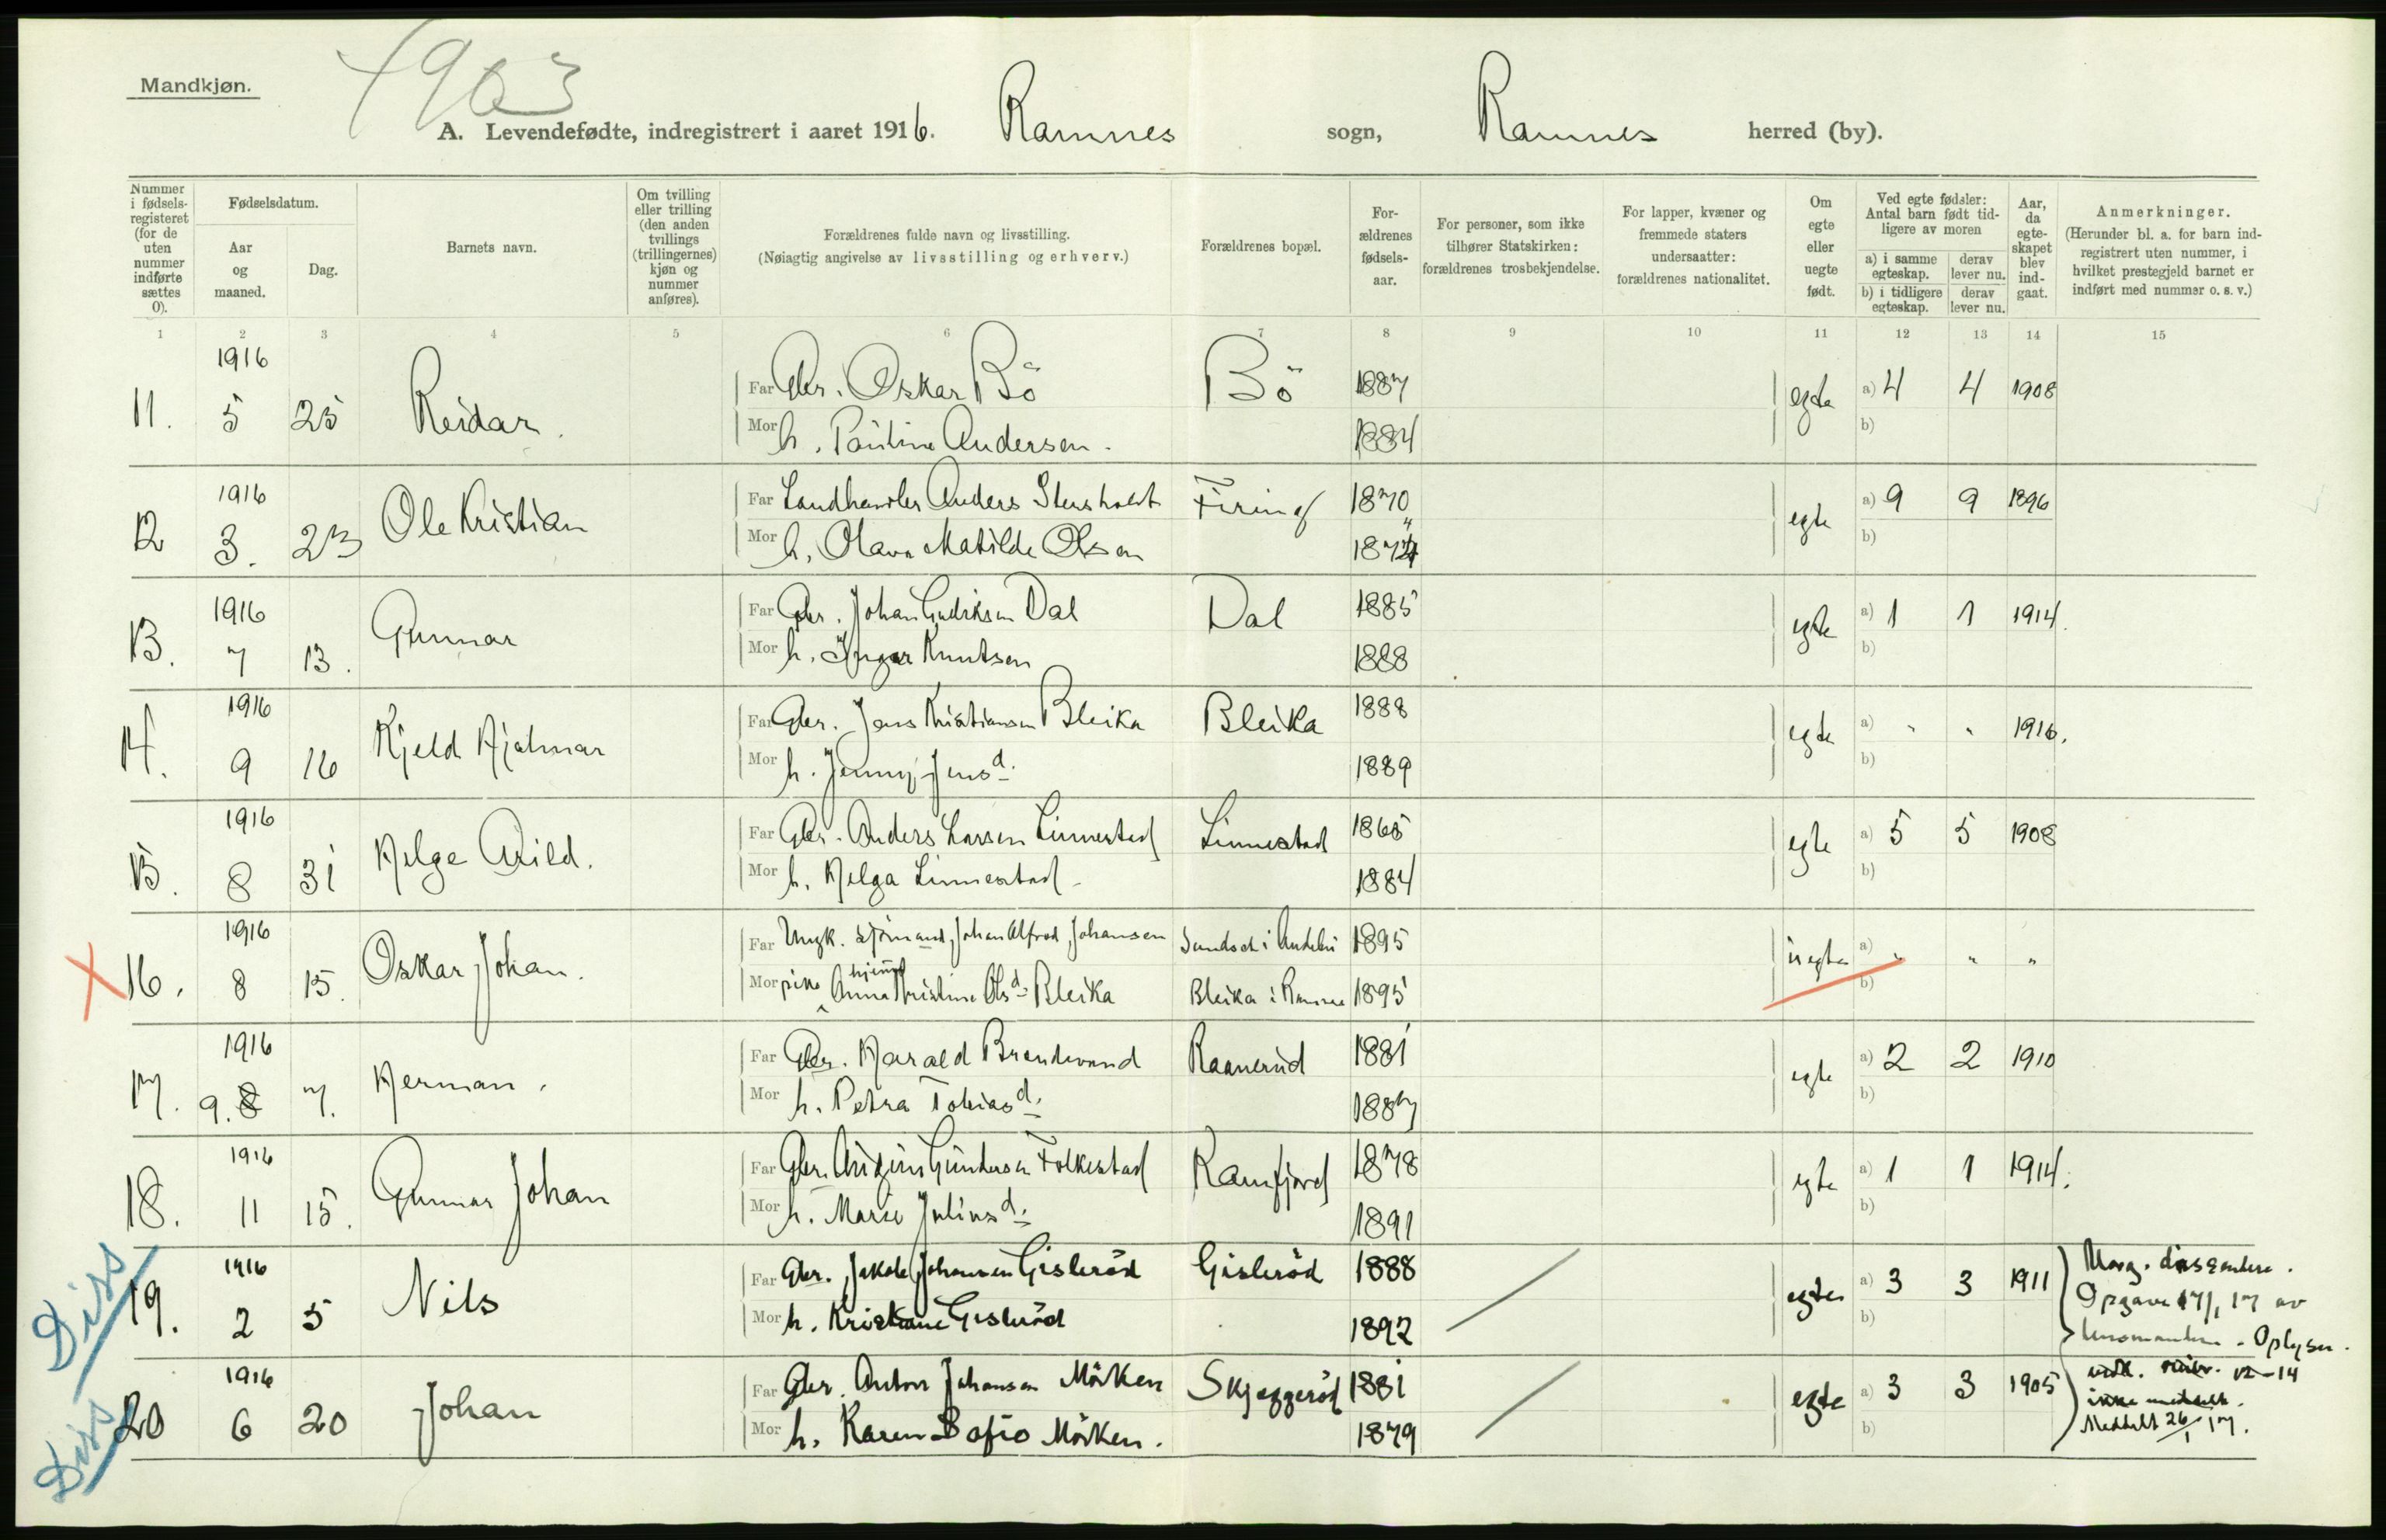 Mandkjøn.
1903
A. Levendefødte, indregistrert i aaret 1916. Ramnes sogn, Ramnes herred (by).
Nummer i fødsels-registeret (for de uten nummer indførte sættes 0).
Fødselsdatum.
Aar og maaned.
Dag.
Barnets navn.
Om tvilling eller trilling (den anden tvillings (trillingernes) kjøn og nummer anføres).
Forældrenes fulde navn og livsstilling.
(Nøiagtig angivelse av livsstilling og erhverv.)
Forældrenes bopæl.
For-ældrenes fødsels-aar.
For personer, som ikke tilhører Statskirken: forældrenes trosbekjendelse.
For lapper, kvæner og fremmede staters undersaatter: forældrenes nationalitet.
Om egte eller uegte født.
Ved egte fødsler: Antal barn født tid-ligere av moren
a) i samme egteskap.
derav lever nu.
b) i tidligere egteskap.
derav lever nu.
Aar, da egte-skapet blev ind-gaat.
Anmerkninger.
(Herunder bl. a. for barn ind-registrert uten nummer, i hvilket prestegjeld barnet er indført med nummer o. s. v.)
1 2 3 4 5 6 7 8 9 10 11 12 13 14 15
1916
11. 5 25 Reidar. Far Gbr. Oskar Bö Bö 1887 egte a) 4 4 1908
Mor h. Pauline Andersen. 1884 b)
1916
12 3. 23 Ole Kristian Far Landhandler Anders Firing 1870 egte a) 9 9 1896
Mor h. Olava Matilde Olsen b)
1916
13. 7 13. Gunnar Far Gbr. Johan Dal Dal 1885 egte a) 1 1 1914.
Mor h. Inger Knutsen 1888 b)
1916
14. 9 16 Kjeld Hjalmar Far Gbr. Jens Kristiansen Bleika Bleika 1888 egte a) " " 1916.
Mor h. Jenny Jensd. 1889 b)
1916
15. 8 31 Helge Arild. Far Gbr. Anders Larsen Linnestad Linnestad 1865 egte a) 5 5 1908
Mor h. Helga Linnestad 1884 b)
1916
X 16. 8 15. Oskar Johan. Far Ungk. sjömand Johan Alfred Johansen i Andebu 1895 uegte a) " " "
Mor pike Anna Kristine Olsd. Bleika Bleika i Ramnes 1895 b)
1916
17. 9. 8 7. Herman. Far Gbr. Harald Brendevand Raanerud 1881 egte a) 2 2 1910
Mor h. Petra Tobiasd. 1887 b)
1916
18. 11 15. Gunnar Johan Far Gbr. Gundersen Folkestad Ramfjord 1878 egte a) 1 1 1914.
Mor h. Marie Juliusd. 1891 b)
Diss
1916
19. 2 5 Nils Far Gbr. Jakob Johansen Gisleröd Gisleröd 1888 egte a) 3 3 1911 Marg. dissentere.
Opgave 17/1 17 av
Mor h. Kristiane Gisleröd 1892 b) Oplysn.
Diss
1916
20 6 20 Johan Far Gbr. Anton Johansen Mörken Skjeggeröd 1881 egte a) 3 3 1905 12-14
ikke meddelt.
Mor h. Karen Sofie Mörken. 1879 b) Meddelt 26/1 17.